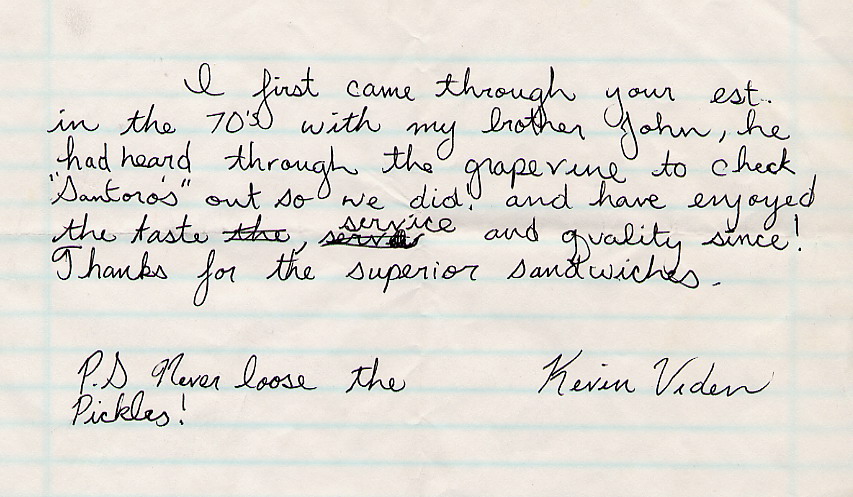 I first came through your est.
in the 70's with my brother John, he
had heard through the grapevine to check
"Santoro's" out so we did! and have enjoyed
the taste the, service and quality since!
Thanks for the superior sandwiches.
P.S Never loose the
Pickles!
Kevin Viden